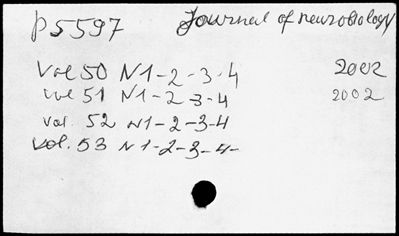 p5597 Journal of neurobiology
Vol 50 N1-2-3-4 2002
vol 51 N1-2-3-4 2002
vol. 52 N1-2-3-4
vol. 53 N1-2-3-4-